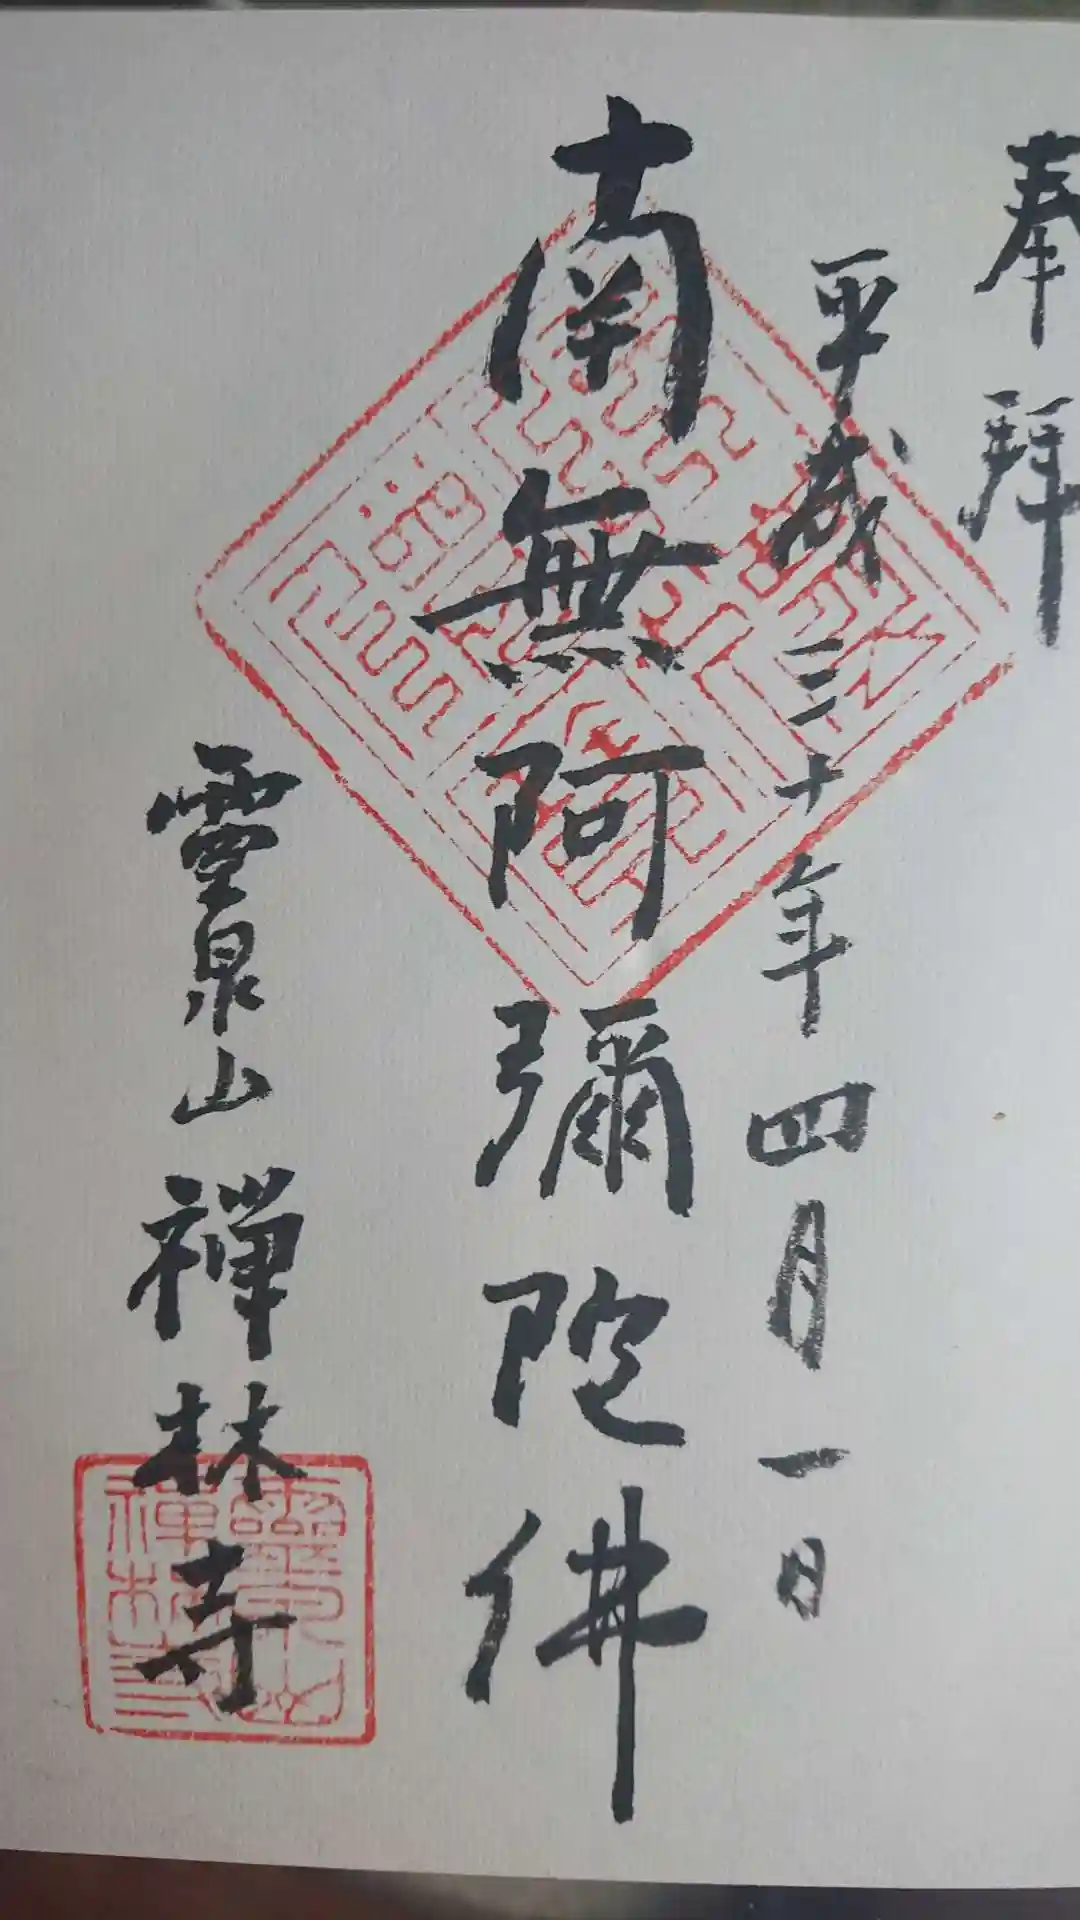 奉拜
平成三十年四月一日
南無阿彌陀佛
靈泉山禪林寺